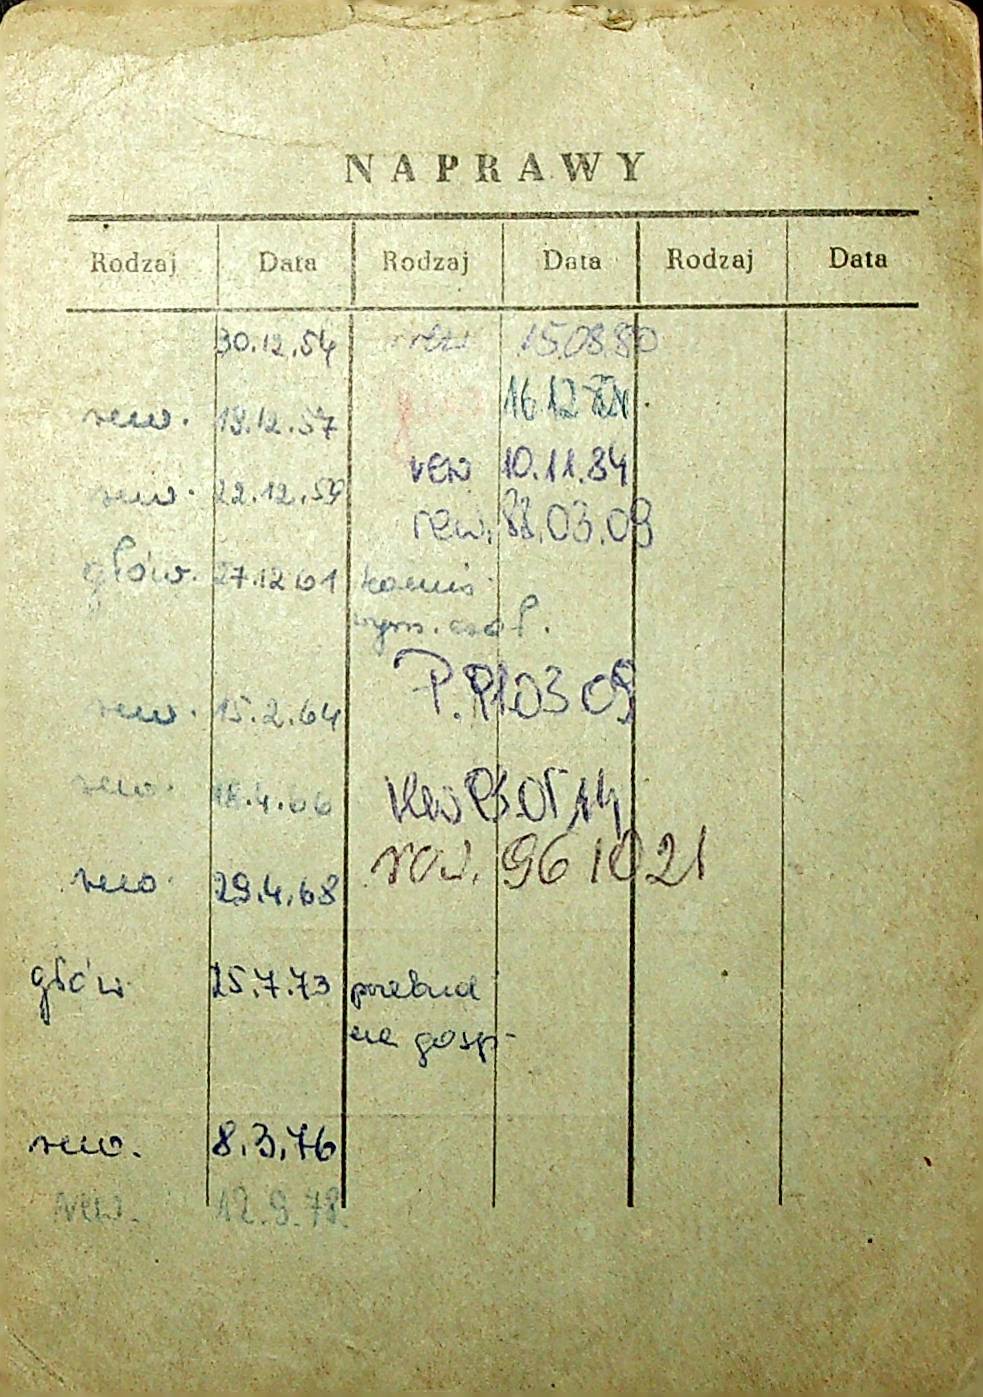 NAPRAWY
Rodzaj Data Rodzaj Data Rodzaj Data
30.12.54
rew. 18.12.57
rew. 22.12.59
głów. 27.12 61
rew. 15.2.64
rew. 18.4.66
rew. 29.4.68
głów 25.7.73 przebud
na gosp
rew. 8.3.76
rew. 12.9.78.
rew 15.08.80
16.12
rew 10.11.84
rew. 88.03.09
wym.
P. 91.03 09
rew 93.05.14
rew. 96 10 21